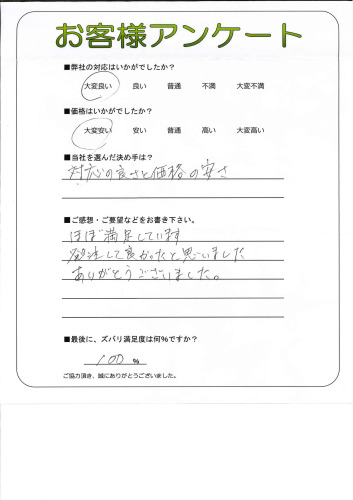 お客様アンケート
■弊社の対応はいかがでしたか？
大変良い 良い 普通 不満 大変不満
■価格はいかがでしたか？
大変安い 安い 普通 高い 大変高い
■当社を選んだ決め手は？
対応の良さと価格の安さ
■ご感想・ご要望などをお書き下さい。
ほぼ満足しています
発注して良かったと思いました
ありがとうございました。
■最後に、ズバリ満足度は何％ですか？
100 %
ご協力頂き、誠にありがとうございました。